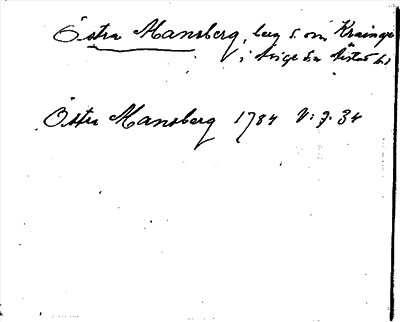 Östra Mansberg, beg s. om Krainge
i Stige sn
Östra Mansberg 1784 V: 7. 34